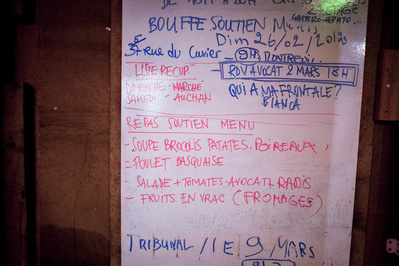 BOUFFE SOUTIEN
Dim 26/02/2012
37 rue du Cuvier - MONTREUIL
LISTE RECUP.
RDV AVOCAT 2 MARS 18H
DIMANCHE - MARCHÉ
SAMEDI - AUCHAN
QUI A MA FRONTALE?
BIANCA
REPAS SOUTIEN MENU
- SOUPE BROCOLIS PATATES. POIREAUX,
= POULET BASQUAISE
- SALADE + TOMATES - AVOCAT + RADIS
- FRUITS EN VRAC (FROMAGES)
TRIBUNAL 9 MARS